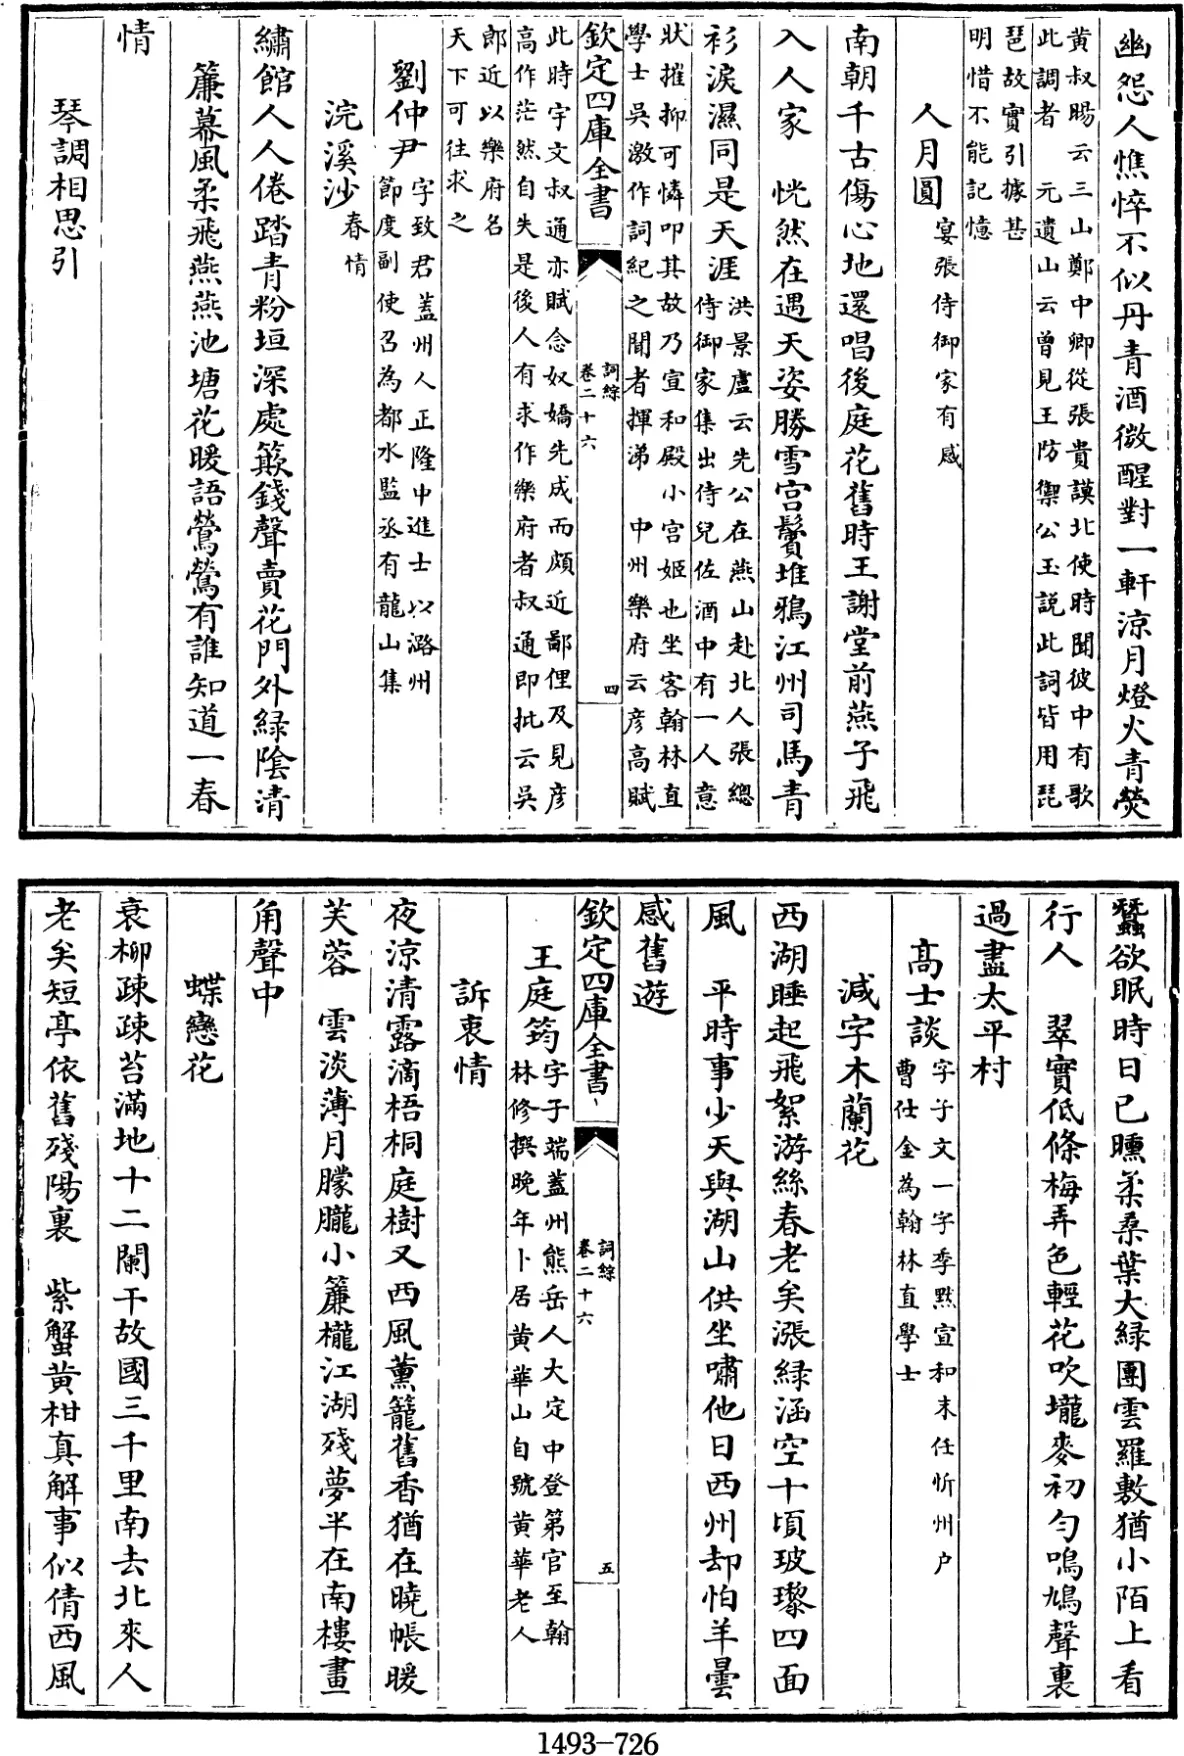 幽怨人憔悴不似丹青酒微醒對一軒涼月燈火青熒
黄叔暘云三山鄭中卿從張貴謨北使時聞彼中有歌
此調者　元遺山云曾見王防禦公玉説此詞皆用琵
琶故實引據甚
明惜不能記憶
人月圓宴張侍御家有感
南朝千古傷心地還唱後庭花舊時王謝堂前燕子飛
入人家　恍然在遇天姿勝雪宫鬢堆鴉江州司馬青
衫淚濕同是天涯
洪景盧云先公在燕山赴北人張總
侍御家集出侍兒佐酒中有一人意
狀摧抑可憐叩其故乃宣和殿小宫姬也坐客翰林直
學士吳激作詞紀之聞者揮涕　中州樂府云彦高賦
欽定四庫全書
詞綜
卷二十六
四
此時宇文叔通亦賦念奴嬌先成而頗近鄙俚及見彦
高作茫然自失是後人有求作樂府者叔通即批云吳
郎近以樂府名
天下可往求之
劉仲尹
字致君蓋州人正隆中進士以潞州
節度副使召為都水監丞有龍山集
浣溪沙春情
繡館人人倦踏青粉垣深處簸錢聲賣花門外緑陰清
簾幕風柔飛燕燕池塘花暖語鶯鶯有誰知道一春
情
琴調相思引
蠶欲眠時日已曛柔桑葉大緑團雲羅敷猶小陌上看
行人　翠實低條梅弄色輕花吹壠麥初勻鳴鳩聲裏
過盡太平村
髙士談
字子文一字季黙宣和末任忻州户
曹仕金為翰林直學士
減字木蘭花
西湖睡起飛絮游絲春老矣漲緑涵空十頃玻瓈四面
風　平時事少天與湖山供坐嘯他日西州却怕羊曇
感舊遊
欽定四庫全書
詞綜
卷二十六
五
王庭筠
字子端蓋州熊岳人大定中登第官至翰
林修撰晚年卜居黄華山自號黄華老人
訴衷情
夜涼清露滴梧桐庭樹又西風薰籠舊香猶在曉帳暖
芙蓉　雲淡薄月朦朧小簾櫳江湖殘夢半在南樓畫
角聲中
蝶戀花
衰柳疎疎苔滿地十二闌干故國三千里南去北來人
老矣短亭依舊殘陽裏　紫蟹黄柑真解事似倩西風
1493-726